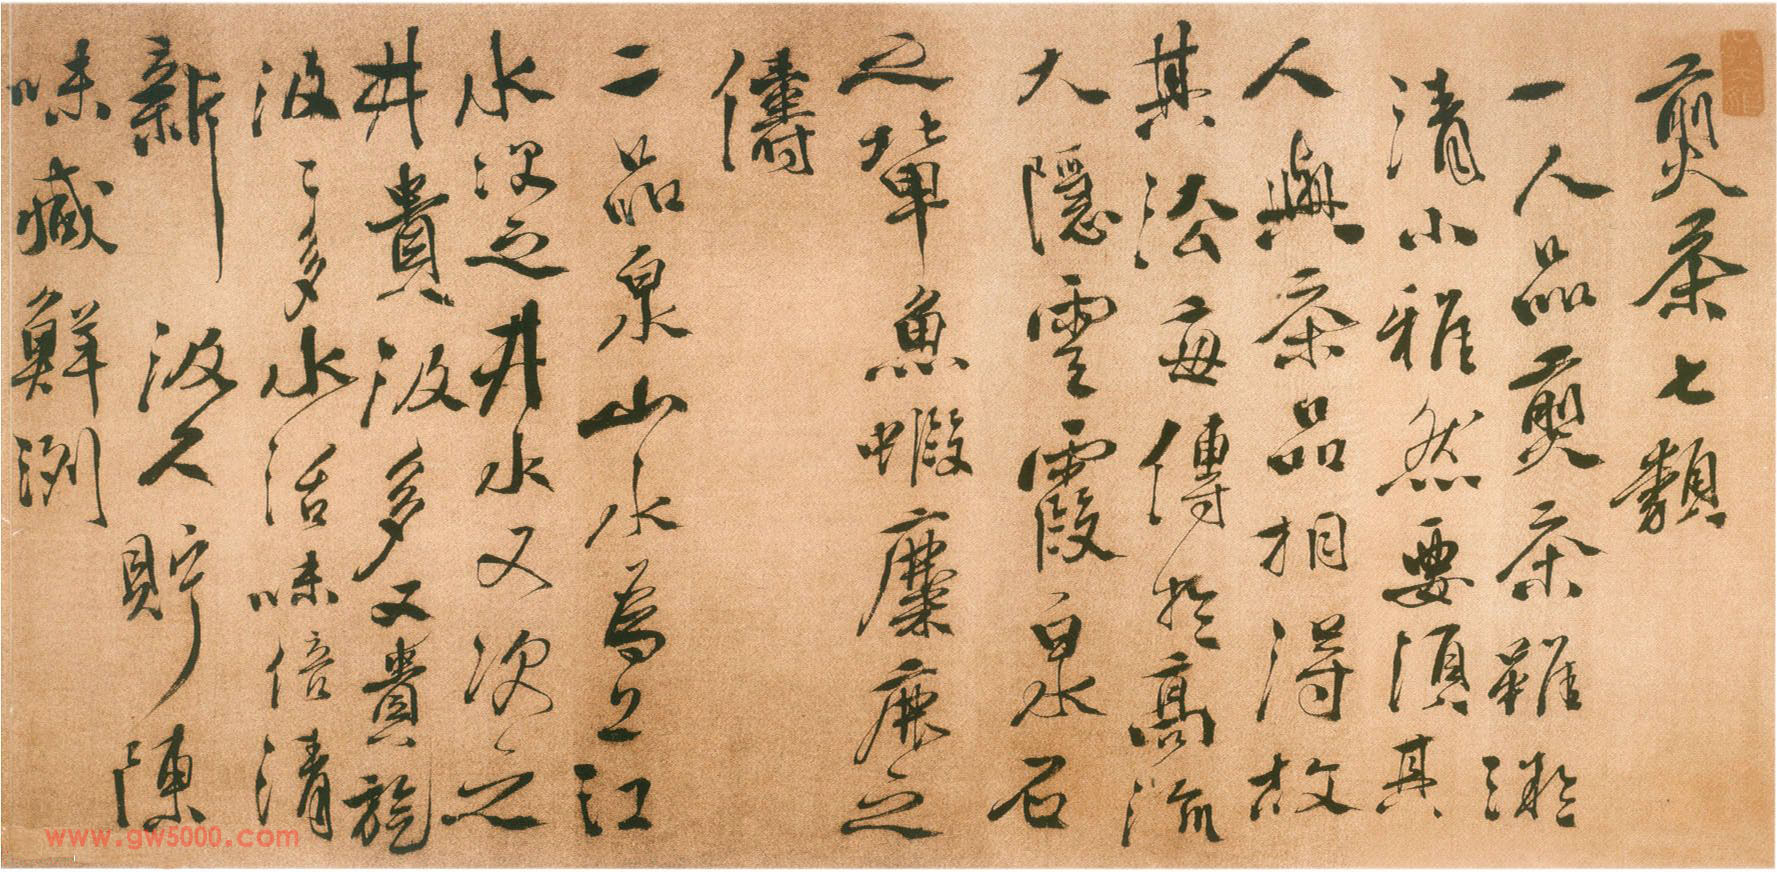 煎茶七類
一人品煎茶雖
清小雅然要須其
人與茶品相得故
其法每傳於高流
大隱雲霞泉石
之輩魚蝦麋鹿之
儔
二品泉山水為上江
水次之井水又次之
井貴汲多又貴旋
汲〻多水活味倍清
新汲久貯陳
味減鮮洌
www.gw5000.com